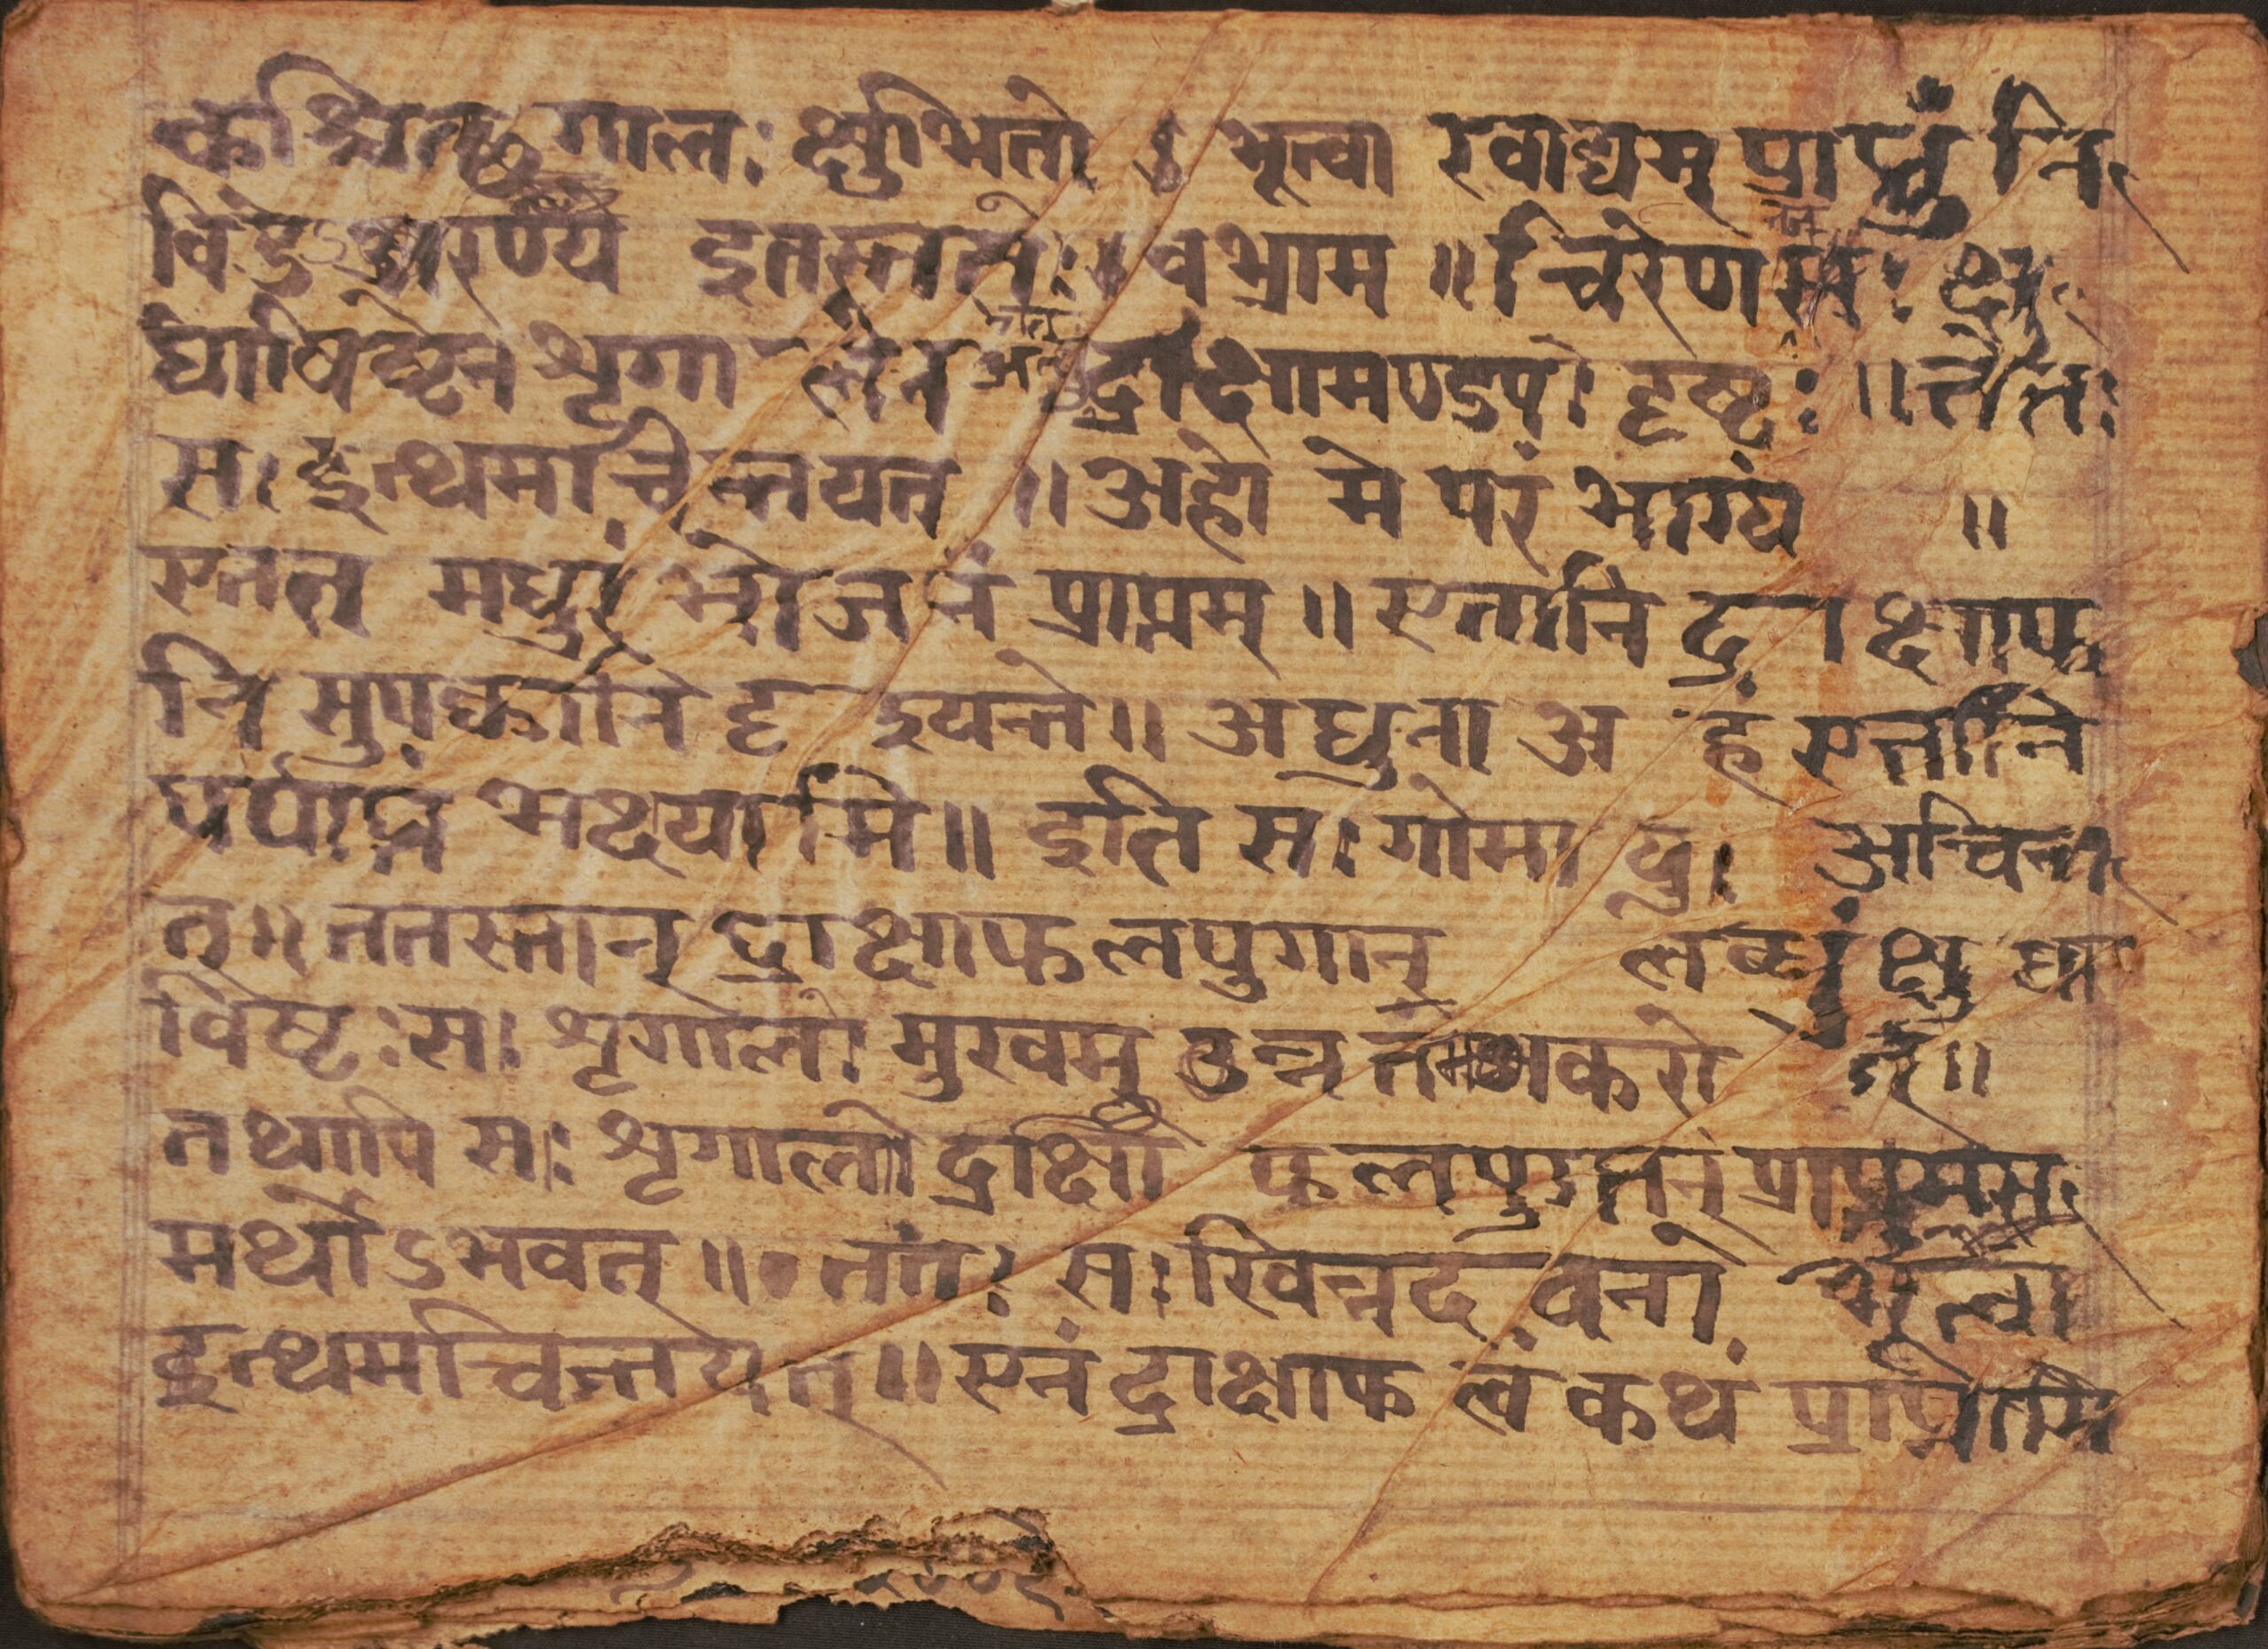 कश्चित्छृगालः क्षुभितो ऽ भूत्वा खाद्यम् प्राप्तुं नि
विडेऽरण्ये इतस्ततः। वभ्राम ॥ चिरेण क्षु
धाविष्टेन शृगालेन द्राक्षामण्डपो दृष्टः ॥ ततः
स। इत्थमचिन्तयत् ॥ अहो मे परं भाग्यं ॥
एतत् मधुरं भोजनं प्राप्तम् ॥ एतानि द्राक्षाफ
नि सुपक्कानि दृश्यन्ते ॥ अधुना अहं एतानि
पर्याप्तं भक्षयामि ॥ इति स। गोमायु। अचिन्त
त् ॥ ततस्तान् द्राक्षाफलपुगान् लब्धुं क्षुधा
विष्टः स। शृगालो मुखम् उन्नतं अकरोत् ॥
तथापि सः शृगालो द्राक्षा फलपुगान् प्राप्तुमस
मर्थोऽभवत् ॥ ततः सः खिन्नवदनो भूत्वा
इत्थमचिन्तयत् ॥ एनं द्राक्षाफलं कथं प्राप्नोमि